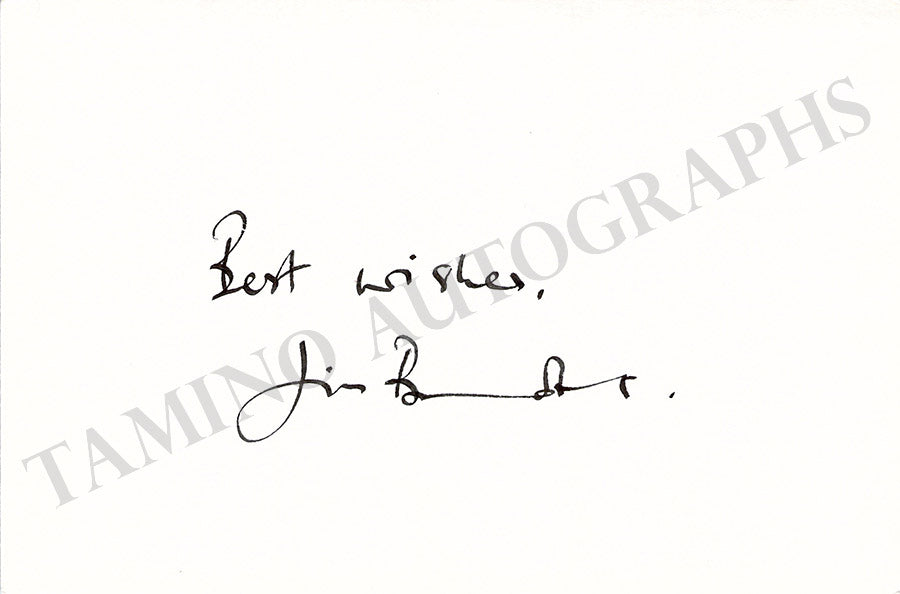 Best wishes.
Jim
TAMINO AUTOGRAPHS